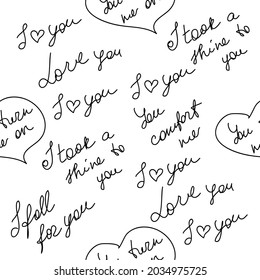 I ♡ you
You turn
me on
I took a
shine to
you
Love you
I ♡ you
I ♡ you
You
comfort
me
turn
me on
You
I took a
shine to
you
I ♡ you
I fall
for you
Love you
I ♡ you
You turn
2034975725